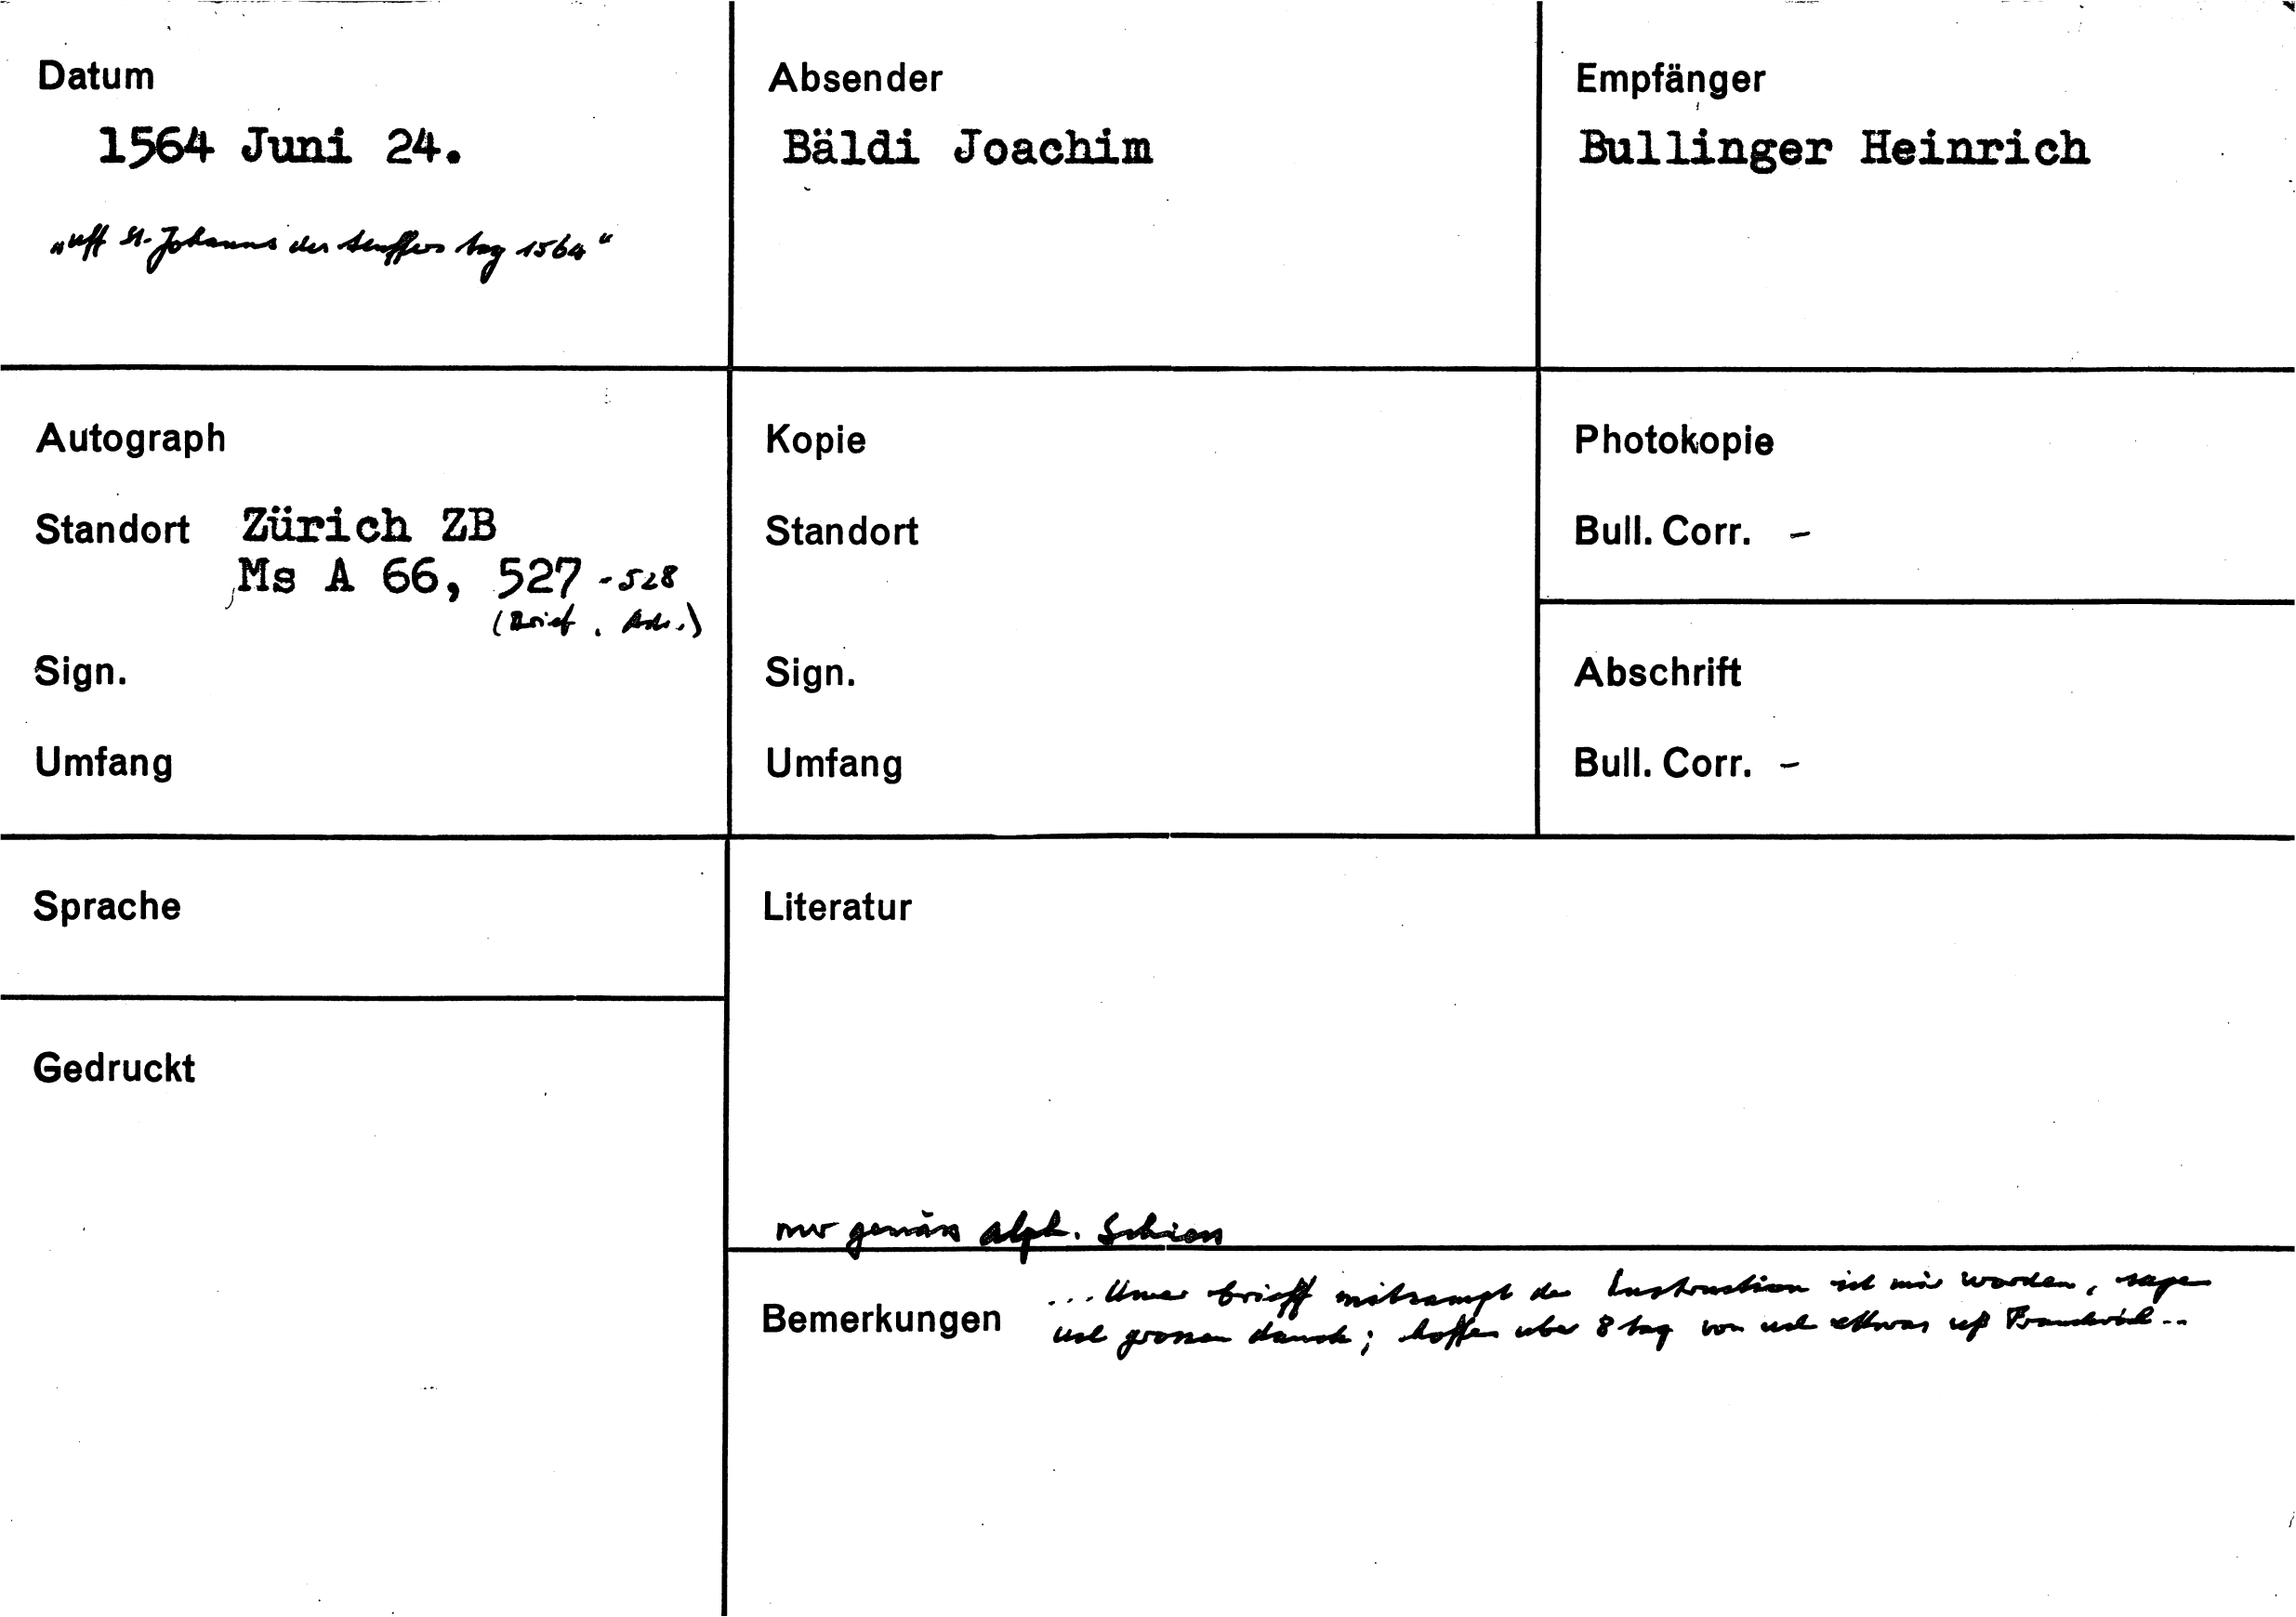 Datum
1564 Juni 24.
„uff St. Johanns des teuffers tag 1564“
Absender
Bäldi Joachim
Empfänger
Bullinger Heinrich
Autograph
Standort Zürich ZB
Ms A 66, 527 - 528
(Brief. Adr.)
Sign.
Umfang
Kopie
Standort
Sign.
Umfang
Photokopie
Bull. Corr. -
Abschrift
Bull. Corr. -
Sprache
Gedruckt
Literatur
nur gemäss alph. Schiess
Bemerkungen ... Uwer brieff mitsampt der Instruction ist mir worden, sage
uch grossen danck; hoffen uber 8 tag von uch ettwas uss Franckrich...